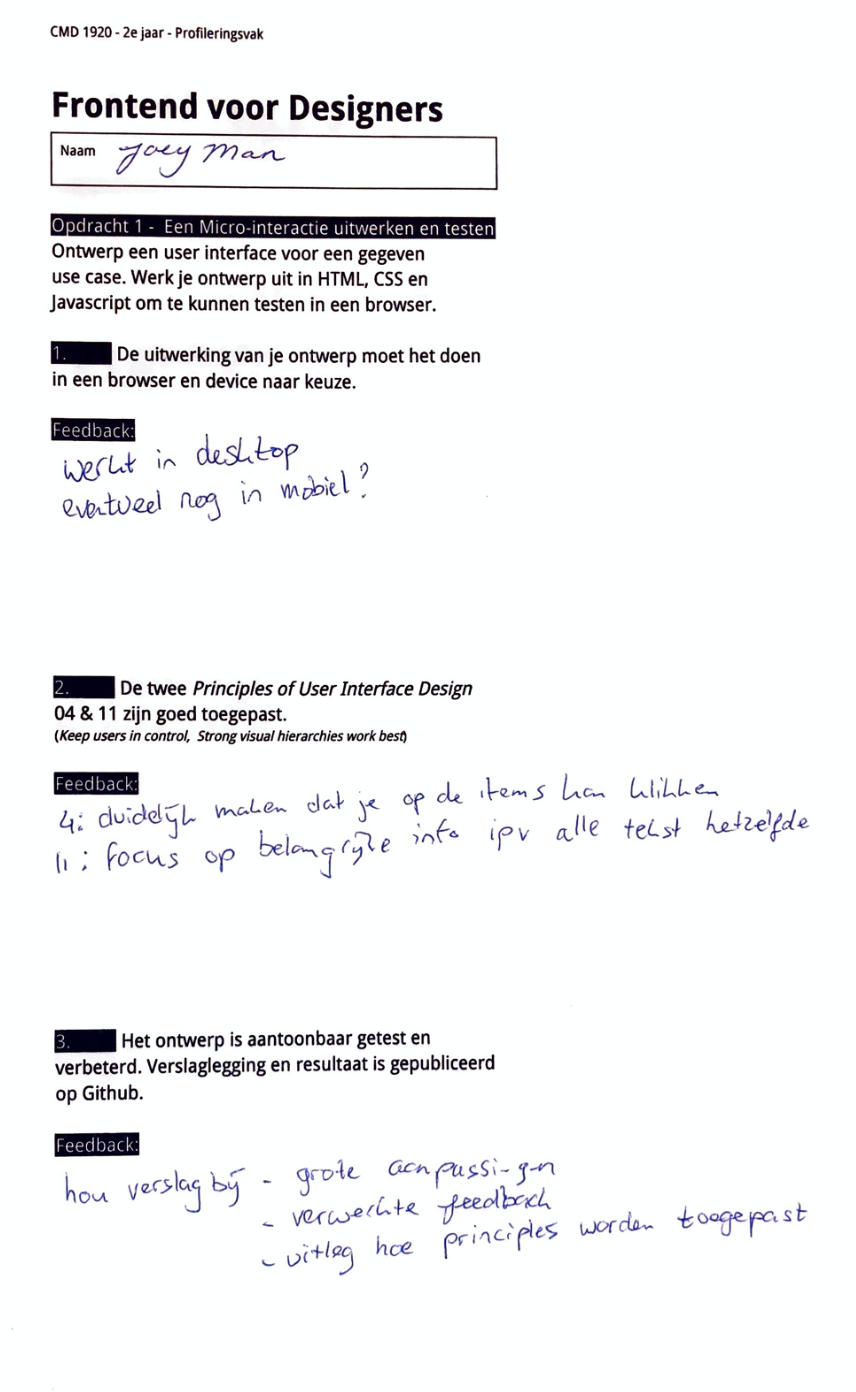 CMD 1920 - 2e jaar - Profileringsvak
Frontend voor Designers
Naam Joey Man
Opdracht 1 - Een Micro-interactie uitwerken en testen
Ontwerp een user interface voor een gegeven
use case. Werk je ontwerp uit in HTML, CSS en
Javascript om te kunnen testen in een browser.
1. De uitwerking van je ontwerp moet het doen
in een browser en device naar keuze.
Feedback:
werkt in desktop
eventueel nog in mobiel?
2. De twee Principles of User Interface Design
04 & 11 zijn goed toegepast.
(Keep users in control, Strong visual hierarchies work best)
Feedback:
4: duidelijk maken dat je op de items kan klikken
11: focus op belangrijke info ipv alle tekst hetzelfde
3. Het ontwerp is aantoonbaar getest en
verbeterd. Verslaglegging en resultaat is gepubliceerd
op Github.
Feedback:
hou verslag bij - grote aanpassingen
- verwerkte feedback
- uitleg hoe principles worden toegepast